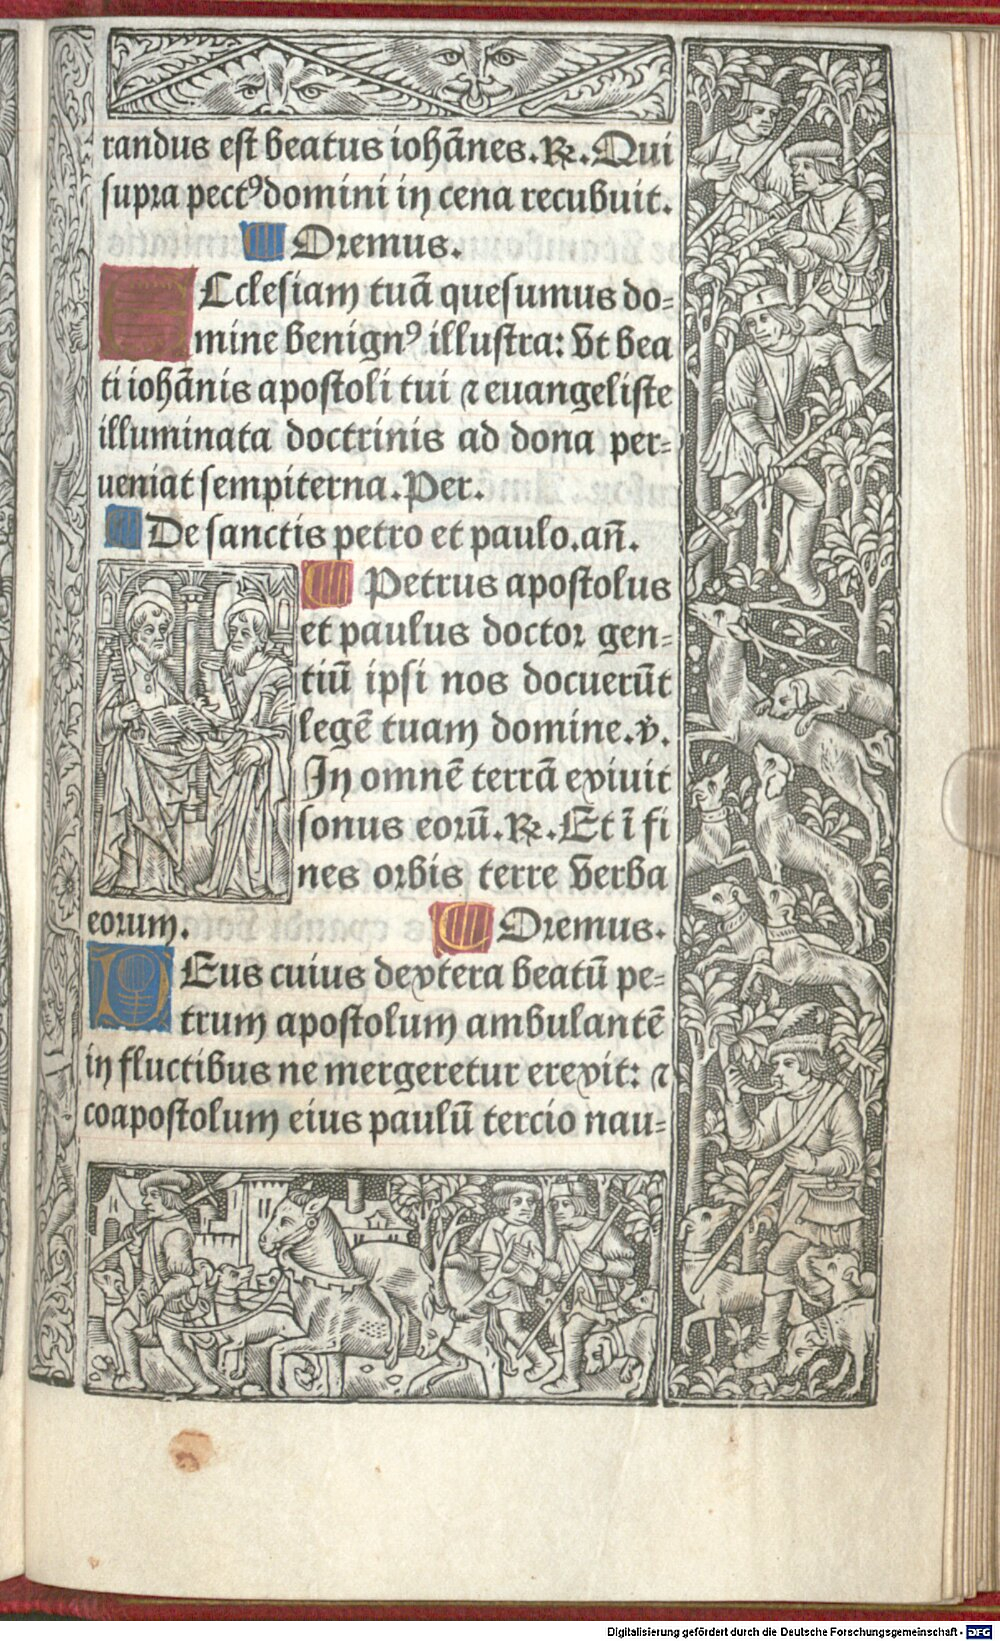 randus est beatus iohānes.℟.Qui
supra pectꝰ domini in cena recubuit.
Oremus.
ECclesiam tuā quesumus do-
mine benignꝰ illustra: Vt bea
ti iohānis apostoli tui ⁊ euangeliste
illuminata doctrinis ad dona per-
ueniat sempiterna. Per.
De sanctis petro et paulo. añ.
Petrus apostolus
et paulus doctor gen-
tiū ipsi nos docuerūt
legē tuam domine. ℣.
In omnē terrā exiuit
sonus eorū.℟. Et ī fi
nes orbis terre Verba
eorum.
Oremus.
DEus cuius dextera beatū pe-
trum apostolum ambulantē
in fluctibus ne mergeretur erexit: ⁊
coapostolum eius paulū tercio nau-
Digitalisierung gefördert durch die Deutsche Forschungsgemeinschaft - DFG